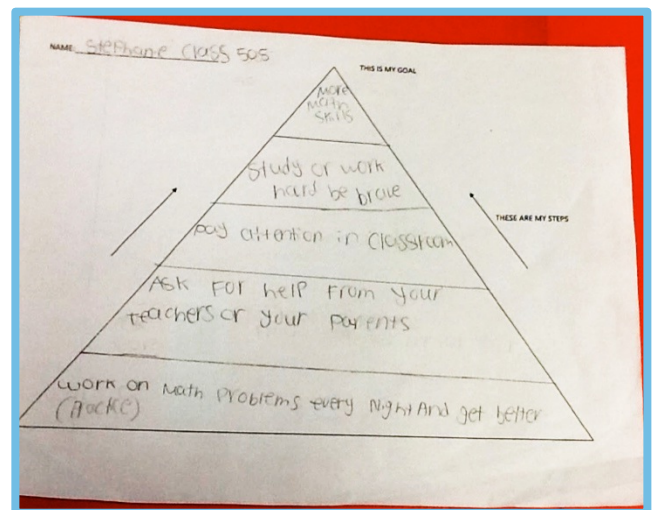 NAME: Stephanie Class 505
THIS IS MY GOAL
More
Math
Skills
Study or work
hard be brave
pay attention in Classroom
THESE ARE MY STEPS
ASK FOR help From your
teachers or your parents
work on Math Problems every Night And get better